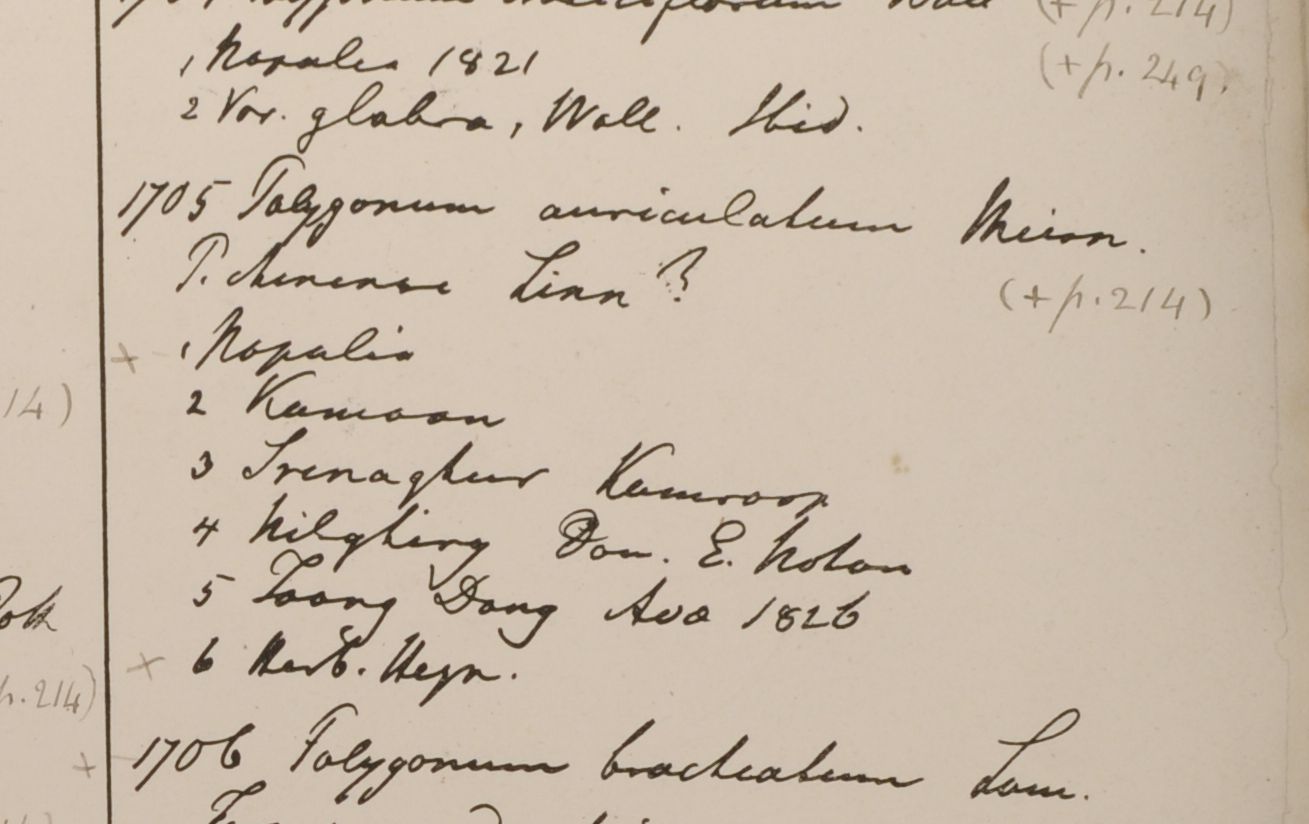 (+ p. 214)
1 Napalia 1821
(+ p. 249)
2 Var. glabra, Wall. Ibid.
1705 Polygonum auriculatum Meisn.
P. chinense Linn?
(+ p. 214)
+ 1 Napalia
2 Kamaon
14)
3 Srenaghur Kamroop
4 Nilghiry Don. E. Noton
5 Taong Dong Ava 1826
+ 6 Herb. Heyn.
p. 214)
+ 1706 Polygonum bracteatum Lam.